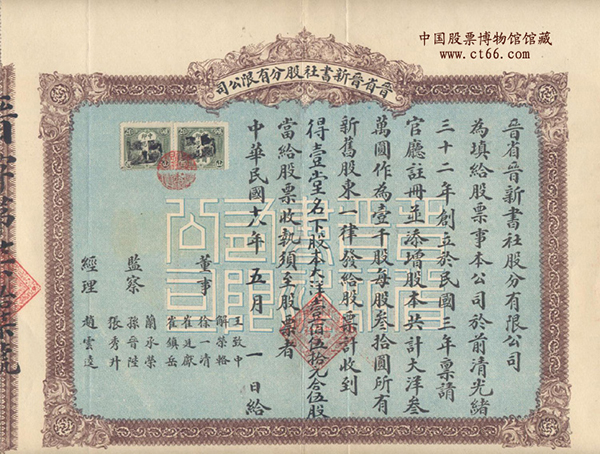 中国股票博物馆馆藏
www.ct66.com
晉省晉新書社股分有限公司
晉省晉新書社股分有限公司
為填給股票事本公司於前清光緒
三十二年創立於民國三年稟請
官廳註冊並添增股本共計大洋叁
萬圓作為壹千股每股叁拾圓所有
新舊股東一律發給股票計收到
得壹堂名下股本大洋壹佰伍拾元合伍股
當給股票收執須至股票者
董事
王致中
解榮輅
徐一清
崔廷獻
崔鎮岳
監察
蘭承榮
孫晉陞
張秀升
經理
趙雲逵
中華民國十八年五月一日給